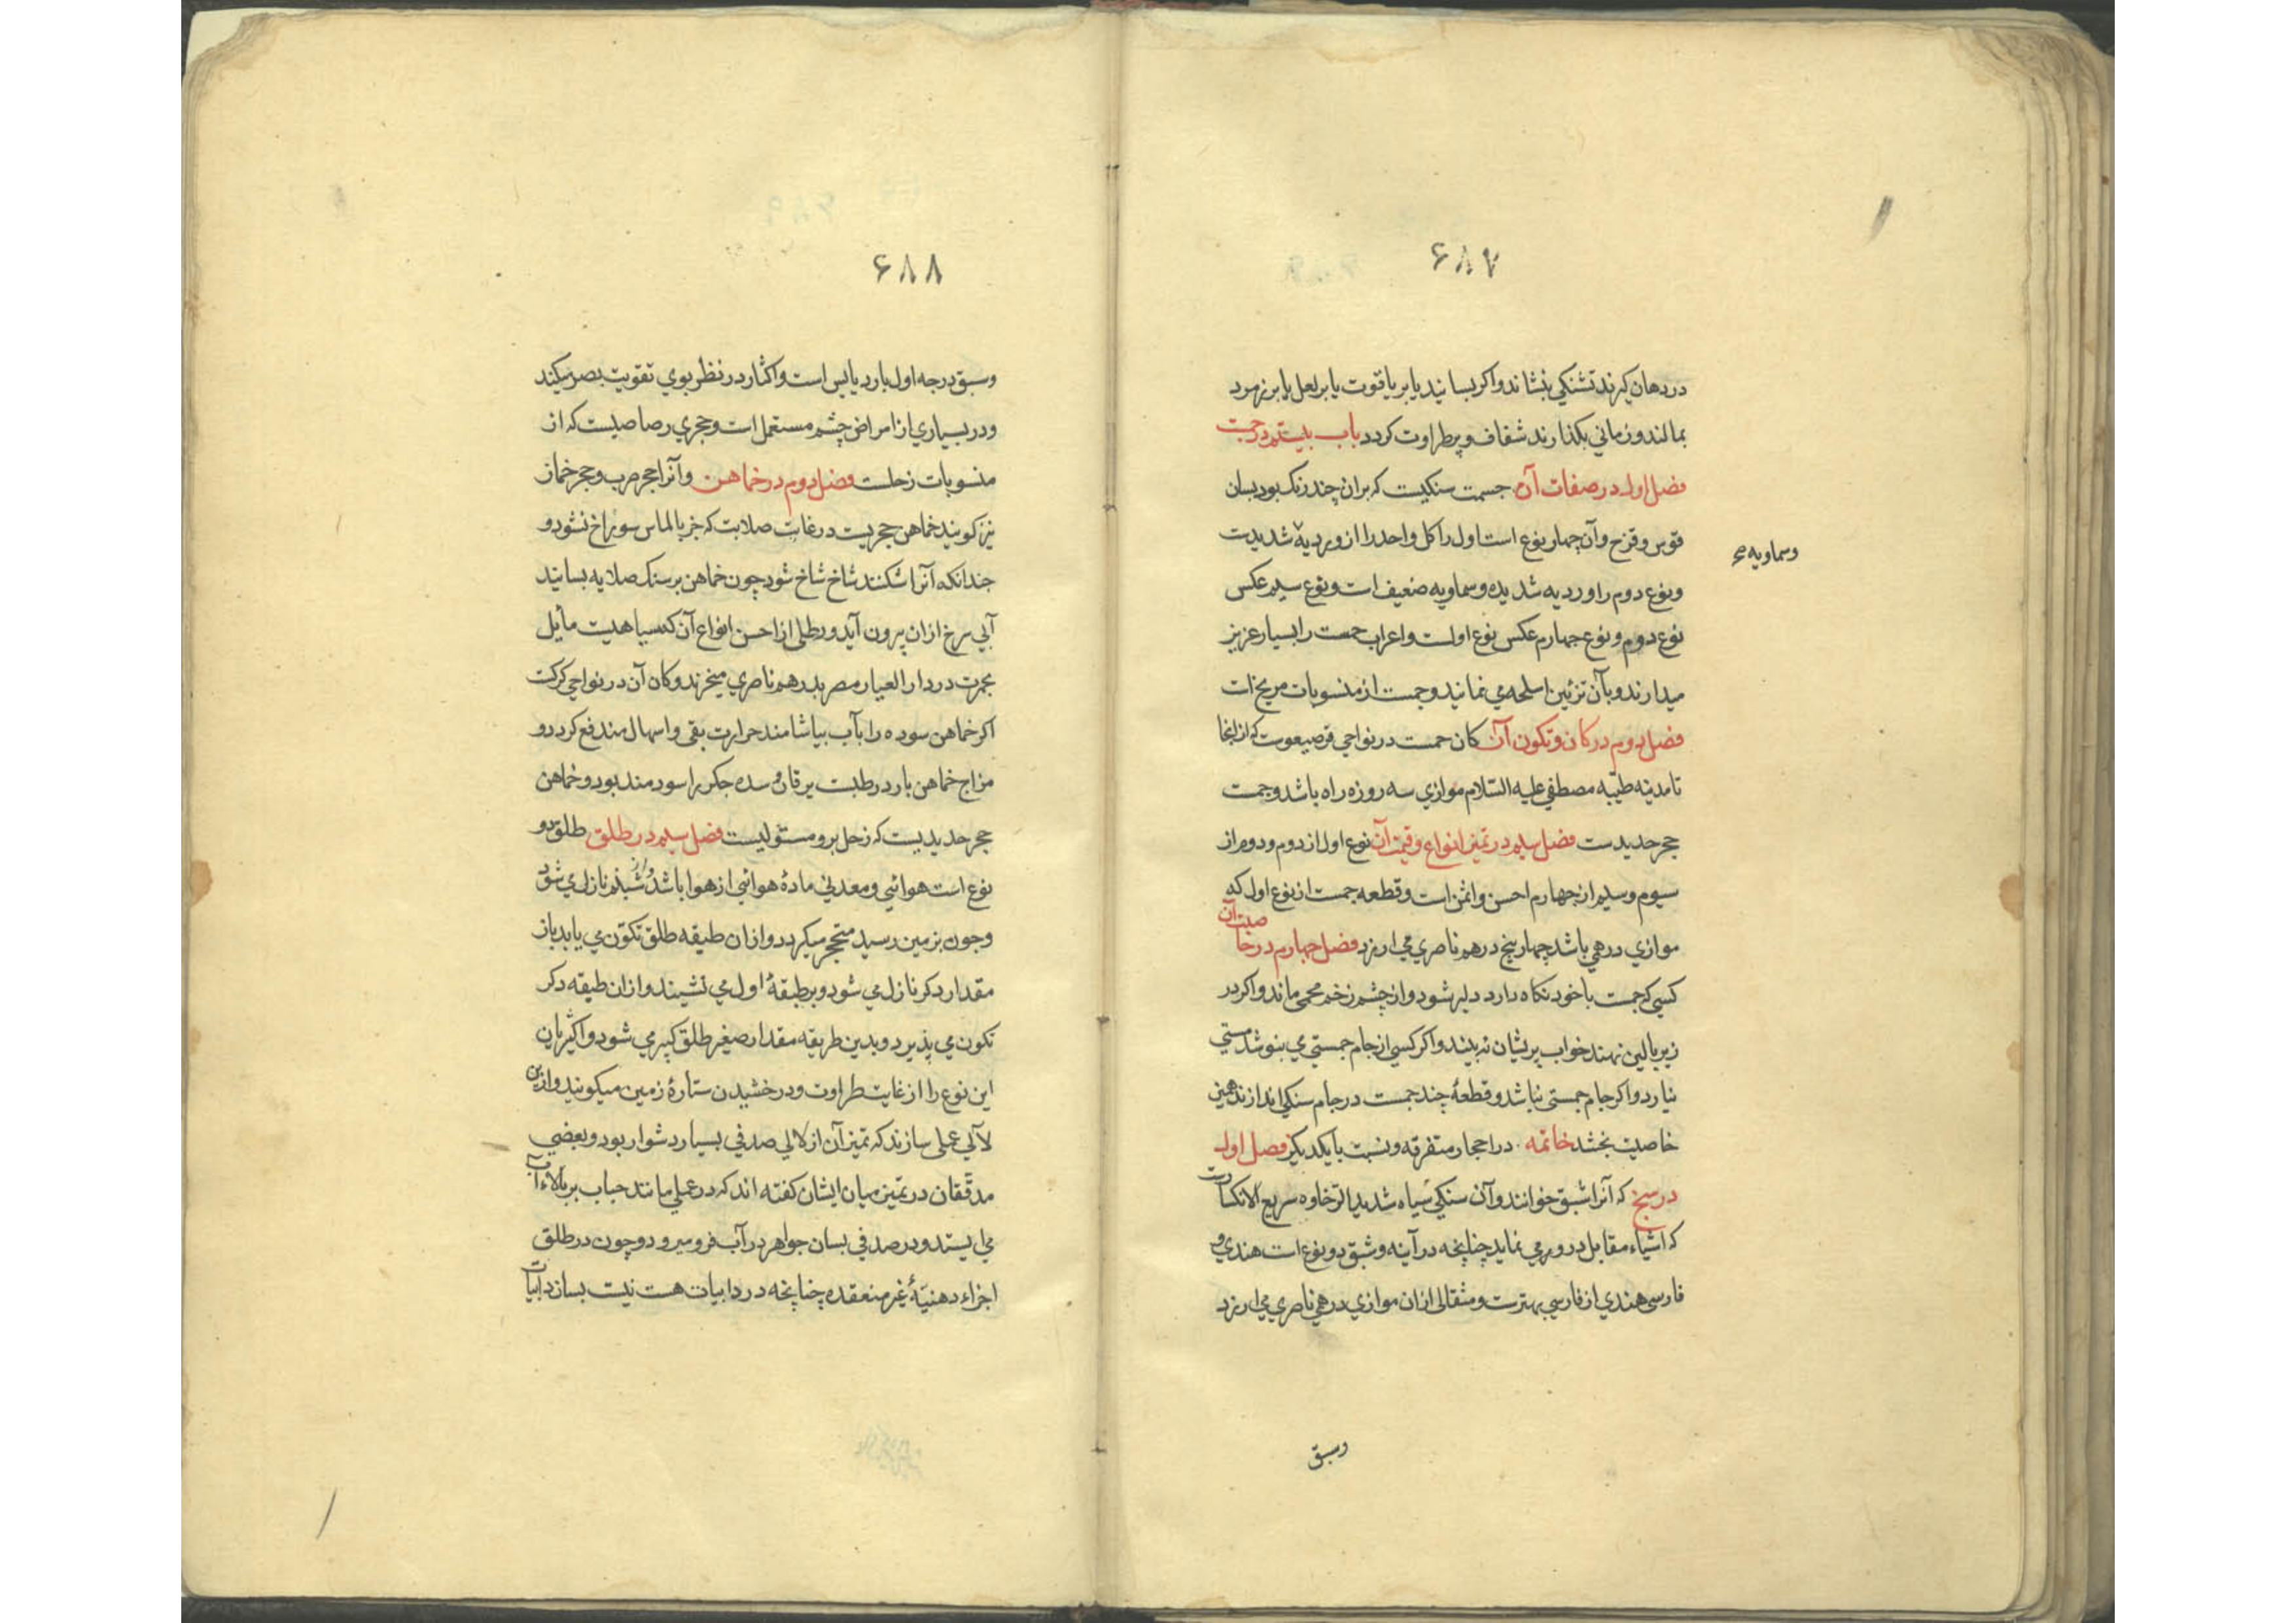 ۶۸۷
در دهان گیرند تشنگی بنشاند واکر بسایند یا بر یاقوت یا بر لعل یا بر زمرد
بمالند وزمانی بکذارند شفاف و پرطراوت کردد باب بیستم در جمست
فصل اول در صفات آن جمست سنکیست که بران چند رنک بود بسان
قوس و قزح وآن چهار نوع است اول را کل واحد را از وردیه شدیدست
وسماویه صح
ونوع دوم را وردیه شدیده وسماویه ضعیف است ونوع سیم عکس
نوع دوم و نوع چهارم عکس نوع اولست واعراب جمست را بسیار عزیز
میدارند وبآن تزئین اسلحه می نمایند وجمست از منسوبات مریخ است
فصل دوم در کان وتکون آن کان جمست در نواحی قرصیعوست که از انجا
تا مدینه طیبه مصطفی علیه السلام موازی سه روزه راه باشد وجمست
حجر حدیدست فصل سیم در تمیز انواع و قیمت آن نوع اول از دوم ودوم از
سیوم وسیم از چهارم احسن واثمن است وقطعه جمست از نوع اول که
موازی درهمی باشد چهار پنج درهم ناصری می ارزد فصل چهارم در خا صیت آن
کسی که جمست با خود نکاه دارد دلیر شود واز چشم زخم محمی ماند واکر در
زیر بالین نهند خواب پریشان نه بیند واکر کسی از جام جمستی می بنوشد مستی
نیارد واکر جام جمستی نباشد وقطعهٔ چند جمست در جام سنکی اندازند همین
خاصیت بخشد خاتمه در احجار متفرقه ونسبت با یکدیکر فصل اول
در سبج که آنرا شبق خوانند وآن سنکی سیاه شدید الرخاوه سریع الانکسا رست
که اشیاء مقابل در وی می نماید چنانچه در آینه وشبق دو نوع است هندی و
فارسی هندی از فارسی بهترست ومثقالی ازان موازی درهمی ناصری می ارزد
وسبق
۶۸۸
وسبق درجه اول بارد یابس است واکثار در نظر بوی تقویت بصر میکند
ودر بسیاری از امراض چشم مستعمل است وحجری رصاصیست که از
منسوبات زحلست فصل دوم در خماهن وآنرا حجر حرب وحجر خماز
نیز کویند خماهن حجریست در غایت صلابت که جز بالماس سوراخ نشود و
چندانکه آنرا شکنند شاخ شاخ شود چون خماهن بر سنک صلایه بسایند
آبی سرخ ازان بیرون آید ورطلی از احسن انواع آن که سیاهیست مایل
بحمرت در دار العیار مصر بدرهم ناصری میخرند وکان آن در نواحی کرکت
اکر خماهن سوده را بآب بیاشامند حرارت بقی واسهال مندفع کردد و
مزاج خماهن بارد رطبست یرقان و سده جکر را سودمند بود وخماهن
حجر حدیدیست که زحل برو مستولیست فصل سیم در طلق طلق دو
نوع است هوائی ومعدنی مادهٔ هوائی از هوا باشد شبنم نازل می شود
وچون بزمین رسید متحجر میکردد وازان طبقه طلق تکون می یابد باز
مقدار دکر نازل می شود وبر طبقهٔ اول می نشیند وازان طبقه دکر
تکون می پذیرد وبدین طریقه مقدار صغیر طلق کبیری شود واکثریان
این نوع را از غایت طراوت ودرخشیدن ستارهٔ زمین میکویند وازین
لآلی عملی سازند که تمیز آن از لالی صدفی بسیار دشوار بود وبعضی
مدققان در تمیز میان ایشان کفته اند که در عملی مانند حباب بر بالاء آب
می ایستد ودر صدفی بسان جواهر در آب فرو میرود وچون در طلق
اجزاء دهنیهٔ غیر منعقده چنانچه در دابیات هست نیست بسازد ابیات